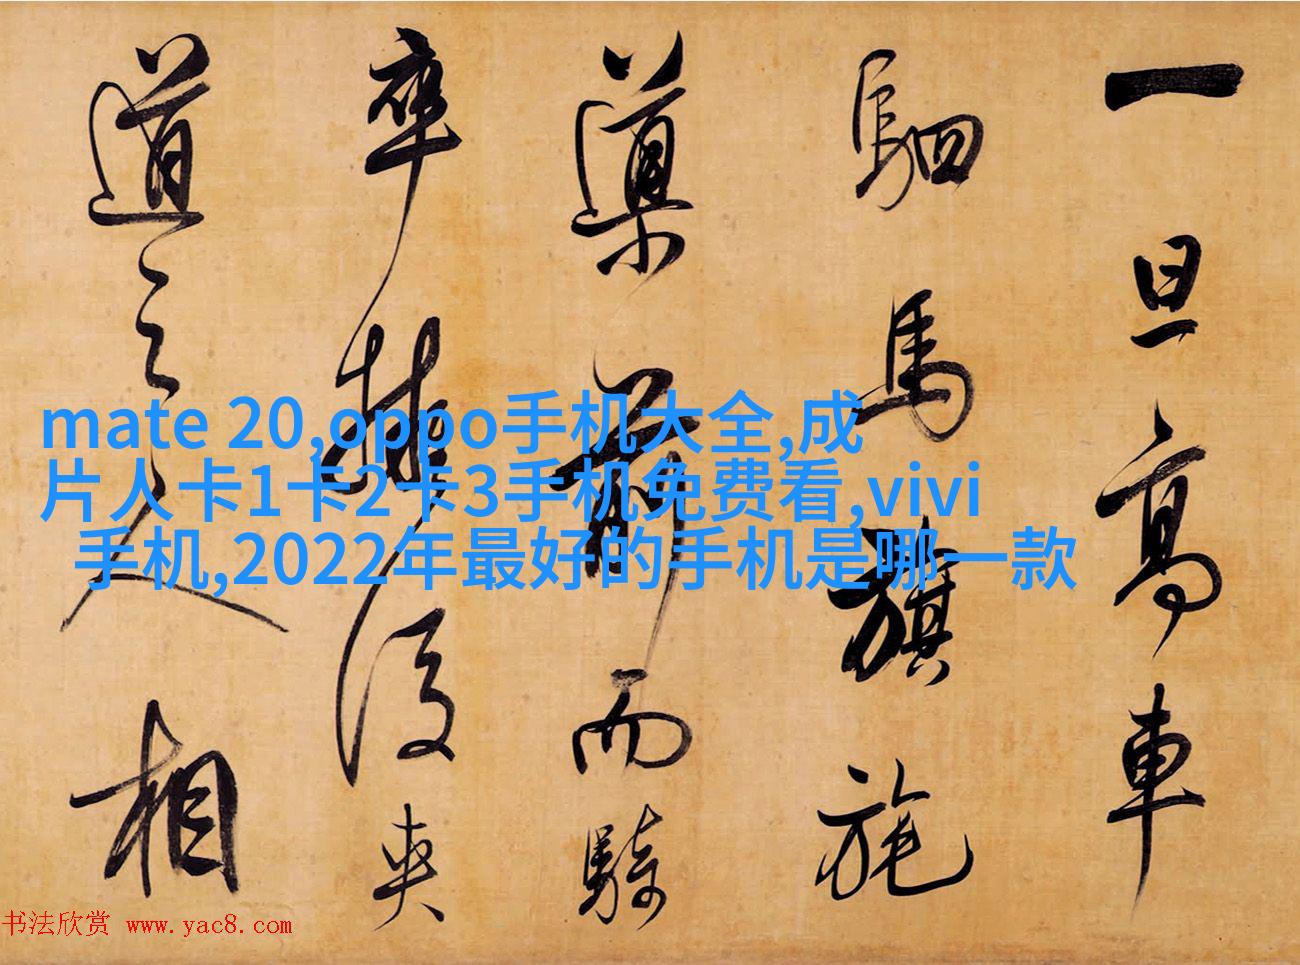 一旦高車
駟馬旗旄
導前而騎
卒擁後夾
道之人相
mate 20,oppo手机大全,成
片人卡1卡2卡3手机免费看,vivi
手机,2022年最好的手机是哪一款
书法欣赏 www.yac8.com